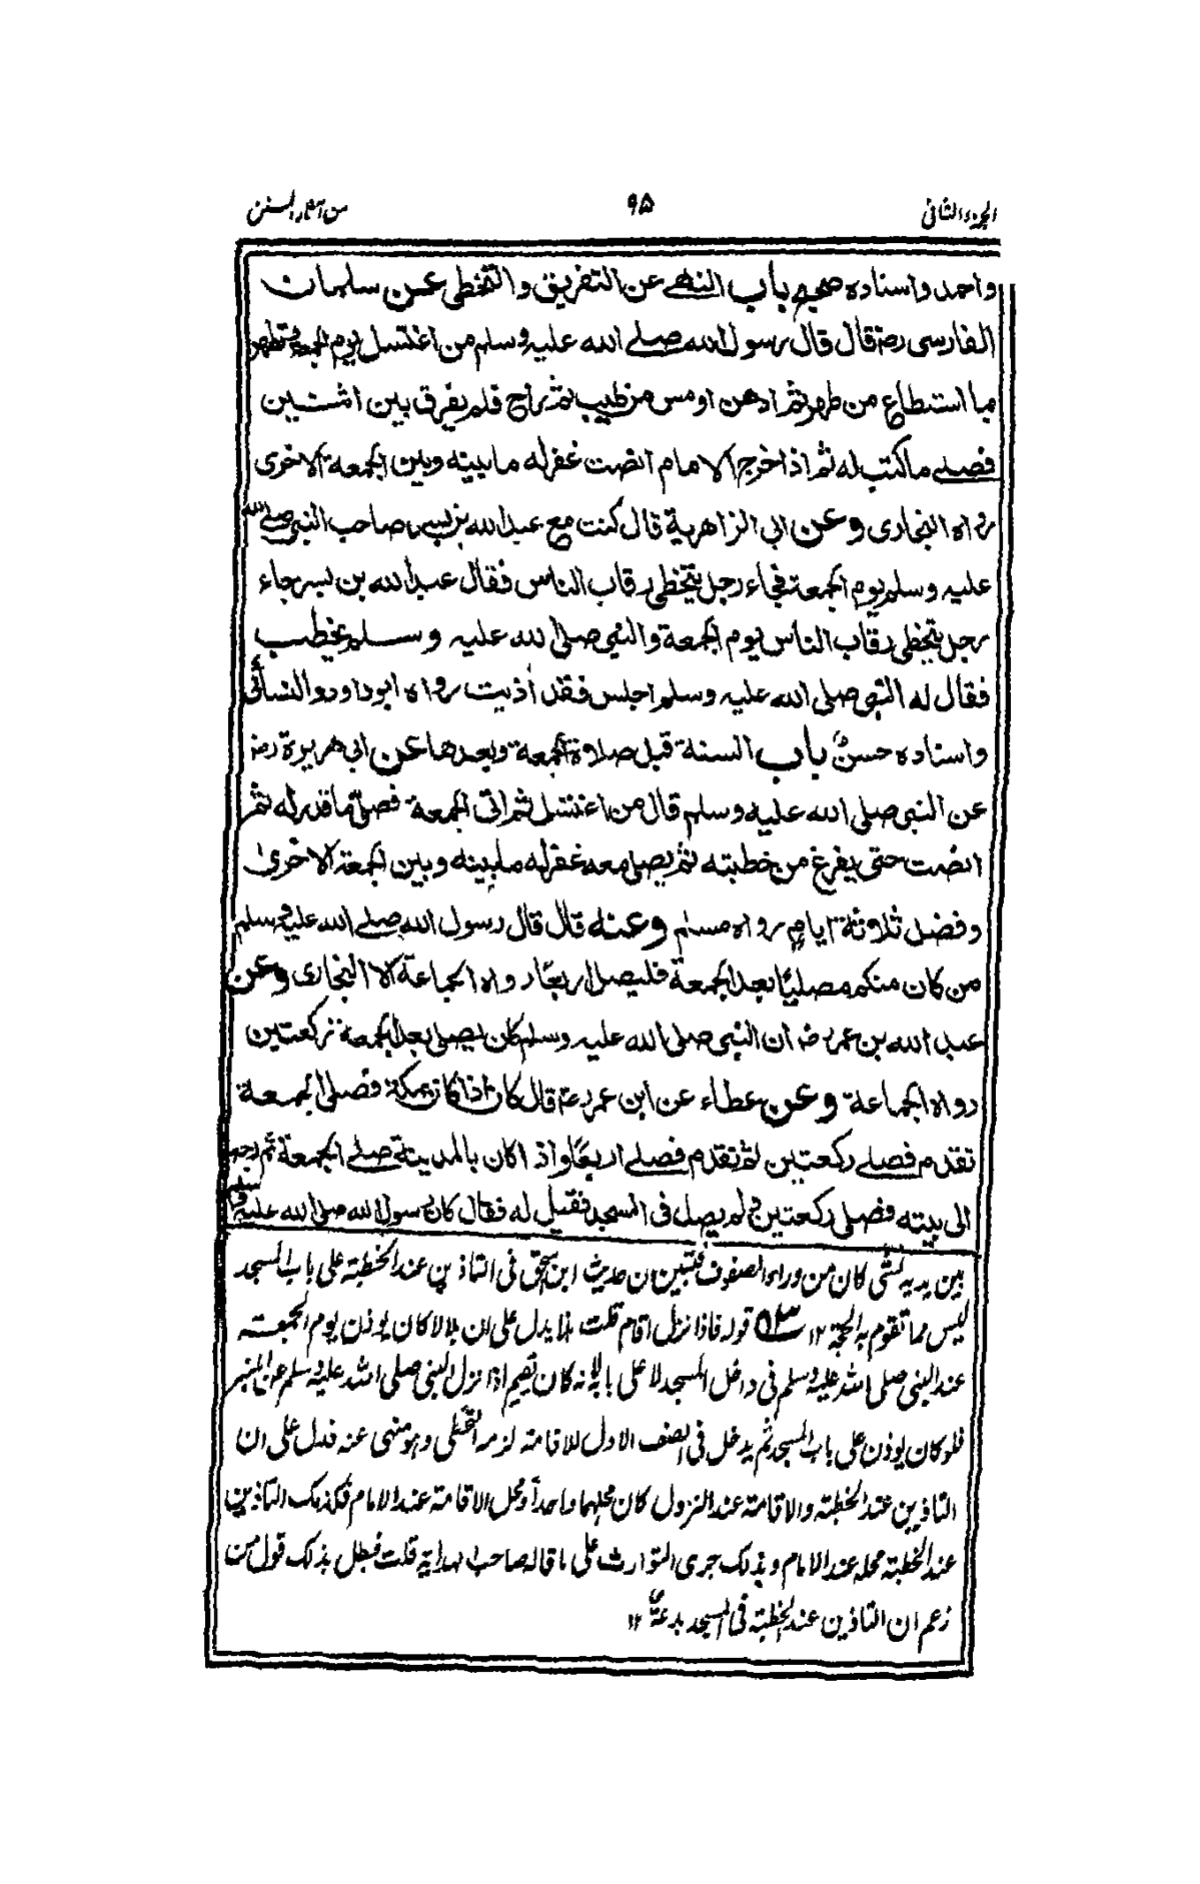 الجزء الثانى ٩٥ من آثار السنن
واحمد واسناده صحيح باب النهى عن التفريق والتخطى عن سلمان
الفارسى رضـ قال قال رسول الله صلى الله عليه وسلم من اغتسل يوم الجمعة وتطهر
بما استطاع من طهر ثم ادهن او مس من طيب ثم راح فلم يفرق بين اثنين
فصلى ما كتب له ثم اذا خرج الامام انصت غفر له ما بينه وبين الجمعة الاخرى
رواه البخارى وعن ابى الزاهرية قال كنت مع عبد الله بن بسر صاحب النبى صلى الله
عليه وسلم يوم الجمعة فجاء رجل يتخطى رقاب الناس فقال عبد الله بن بسر جاء
رجل يتخطى رقاب الناس يوم الجمعة والنبى صلى الله عليه وسلم يخطب
فقال له النبى صلى الله عليه وسلم اجلس فقد أذيت رواه ابوداود والنسائى
واسناده حسن باب السنة قبل صلاة الجمعة وبعدها عن ابى هريرة رضـ
عن النبى صلى الله عليه وسلم قال من اغتسل ثم اتى الجمعة فصلى ما قدر له ثم
انصت حتى يفرغ من خطبته ثم يصلى معه غفر له ما بينه وبين الجمعة الاخرى
وفضل ثلاثة ايام رواه مسلم وعنه قال قال رسول الله صلى الله عليه وسلم
من كان منكم مصليا بعد الجمعة فليصل اربعًا رواه الجماعة الا البخارى وعن
عبد الله بن عمر رضـ ان النبى صلى الله عليه وسلم كان يصلى بعد الجمعة ركعتين
رواه الجماعة وعن عطاء عن ابن عمر رضـ قال كان اذا كان بمكة فصلى الجمعة
تقدم فصلى ركعتين ثم تقدم فصلى اربعًا واذا كان بالمدينة صلى الجمعة ثم رجع
الى بيته فصلى ركعتين ولم يصل فى المسجد فقيل له فقال كان رسول الله صلى الله عليه وسلم
بين يديه لشئ كان من وراء الصفوف فتبين ان حديث ابن اسحق فى التاذين عند الخطبة على باب المسجد
ليس مما تقوم به الحجة ١٢ قوله فاذا نزل اقام قلت هذا يدل على ان بلالا كان يوذن يوم الجمعة
عند النبى صلى الله عليه وسلم فى داخل المسجد لا على بابه لانه كان يقيم اذا نزل النبى صلى الله عليه وسلم عن المنبر
فلو كان يوذن على باب المسجد ثم يدخل فى الصف الاول للاقامة لزمه التخطى وهو منهى عنه فدل على ان
التاذين عند الخطبة والاقامة عند النزول كان محلهما واحداً ومحل الاقامة عند الامام فكذلك التاذين
عند الخطبة محله عند الامام وبذلك جرى التوارث على ما قاله صاحب الهداية قلت فبطل بذلك قول من
زعم ان التاذين عند الخطبة فى المسجد بدعة ١٢